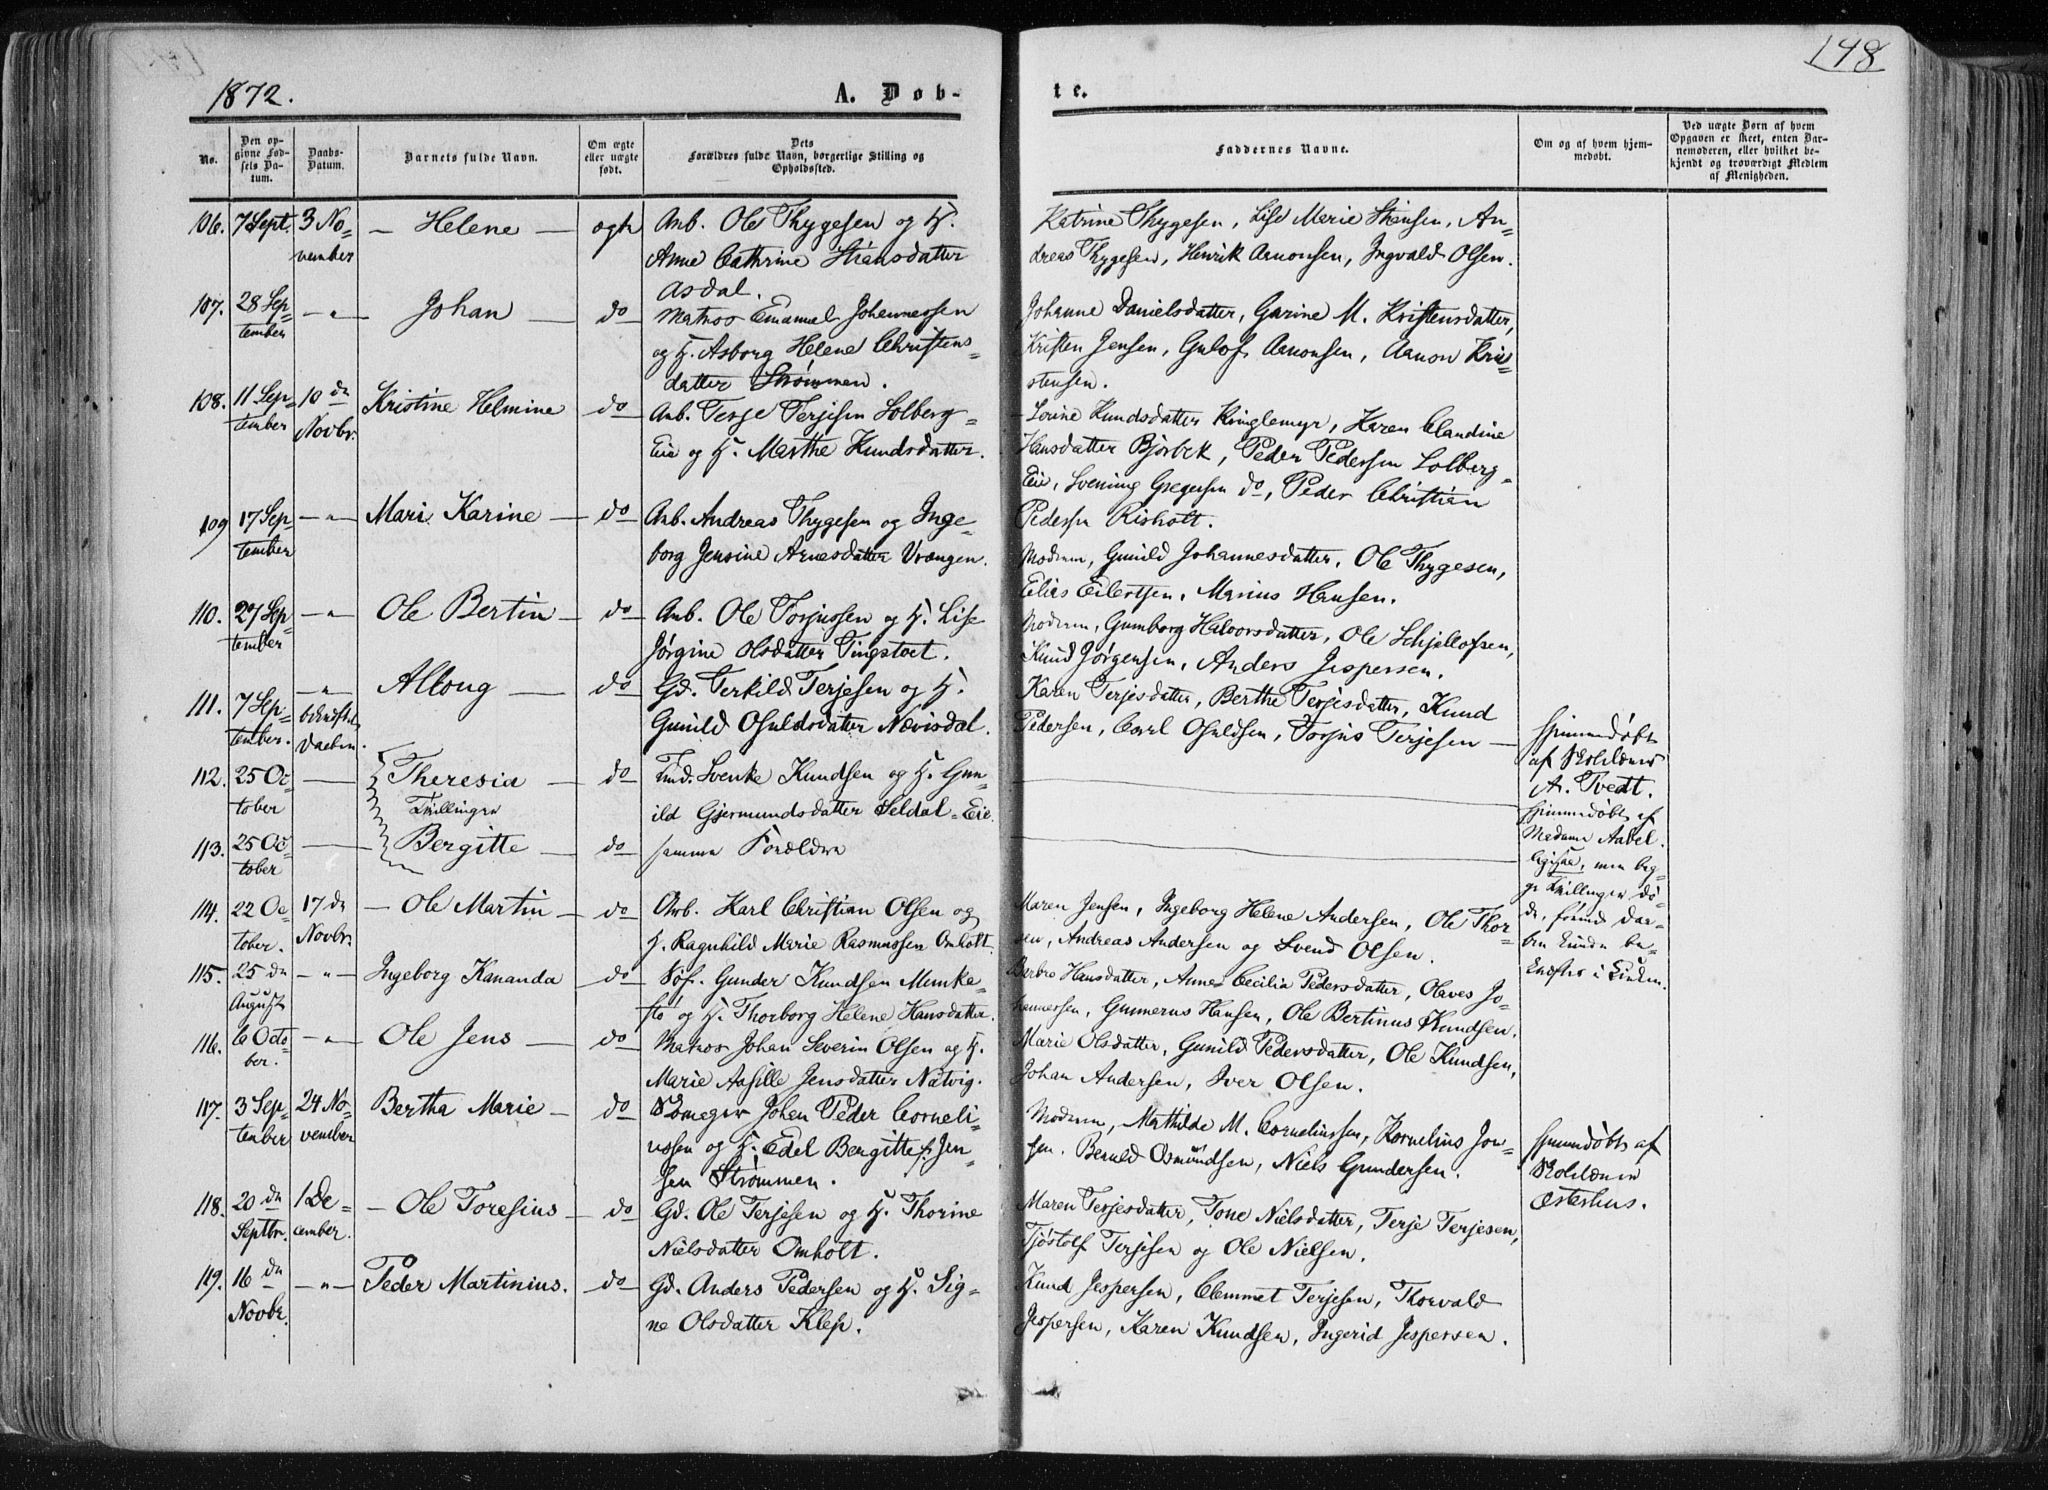 148
1872.
A. Døb-
te.
No.
Den opgivne Fødsels Datum.
Daabs-Datum.
Barnets fulde Navn.
Om ægte eller uægte født.
Dets Forældres fulde Navn, borgerlige Stilling og Opholdssted.
Faddernes Navne.
Om og af hvem hjemmedøbt.
Ved uægte Børn af hvem Opgaven er skeet, enten Barnemoderen, eller hvilket bekjendt og troværdigt Medlem af Menigheden.
106. 7 Sept. 3 No= – Helene – ægte Arb. Ole Thygesen og H.
vember Anne Cathrine Stiansdatter
Asdal.
Katrine Thygesen, Lise Marie Stiansen, An=
dreas Thygesen, Henrik Aanonsen, Ingvald Olsen.
107. 28 Sep= – " – Johan – do Matros Emanuel Johannessen
tember og H. Asborg Helene Christens=
datter Strømmen.
Johanne Danielsdatter, Garine M. Kristensdatter,
Kristen Jensen, Gulof Aanonsen, Aanon Kri=
stensen.
108. 11 Sep= 10 de Kristine Helmine do Arb. Terje Terjesen Solberg=
tember Novbr. Eie og H. Marthe Knudsdatter.
Lovine Knudsdatter Kringlemyr, Karen Claudine
Hansdatter Bjorbek, Peder Pedersen Solberg=
Eie, Svening Gregersen do, Peder Christian
Pedersen Risholt.
109 17 Sep= – " – Mari Karine – do Arb. Andreas Thygesen og Inge=
tember borg Jensine Arnesdatter Vrængen.
Modren, Gunild Johannesdatter, Ole Thygesen,
Elias Eilertsen, Marius Hansen.
110. 27 Sep= – " – Ole Bertin – do Arb. Ole Torjussen og H. Lise
tember Jørgine Olsdatter Tingstvet.
Modren, Gumborg Halvorsdatter, Ole Schjellofsen,
Knud Jørgensen, Anders Jespersen.
111. 7 Sep= – " – Altoug – do Gd. Terkild Terjesen og H.
tember. bekræftet Gunild Osuldsdatter Nævisdal.
Daaben.
Karen Terjesdatter, Berthe Terjesdatter, Knud
Pedersen, Carl Osuldsen, Torjus Terjesen –
Hjemmedøbt
af Skolelærer
A. Tvedt.
112. 25 Oc= – Theresia – do Ind. Svenke Knudsen og H. Gun=
tober Tvillinger ild Gjermundsdatter Seldal=Eie.
Hjemmedøbt af
Madame Aabel.
113. 25 Oc= – Bergitte – do samme Forældre
tober
ligesaa, men beg=
ge Tvillinger dö=
de, forinde Daa=
ben kunde be=
kræftes i Kirken.
114. 22 Oc= 17 de – Ole Martin – do Arb. Karl Christian Olsen og
tober. Novbr. H. Ragnhild Marie Rasmussen Omholt.
Maren Jensen, Ingeborg Helene Andersen, Ole Thor=
sen, Andreas Andersen og Svend Olsen.
115. 25 de – " – Ingeborg Kananda – do Søf. Gunder Knudsen Munke=
August flö og H. Thorborg Helene Hansdatter.
Berbro Hansdatter, Anne Cecilia Pedersdatter, Olaves Jo=
hannessen, Gunnerus Hansen, Ole Bertinus Knudsen.
116. 6 Octo= – " – Ole Jens – do Matros Johan Severin Olsen og H.
ber. Marie Aasille Jensdatter Natvig.
Marie Olsdatter, Gunild Pedersdatter, Ole Knudsen,
Johan Andersen, Iver Olsen.
117. 3 Sep= 24 No= Bertha Marie – do Skomager Johan Peder Corneli=
tember vember ussen og H. Edel Bergitte f. Jen=
sen Strømmen.
Modren, Mathilde M. Corneliussen, Kornelius Jon=
sen. Beruld Osmundsen, Niels Gundersen.
Hjemmedøbt af
Skolelærer
Østerhus.
118. 20 de 1 De= – Ole Toresius – do Gd. Ole Terjesen og H. Thorine
Septbr. cember. Nielsdatter Omholt.
Maren Terjesdatter, Tone Nielsdatter, Terje Terjesen,
Tjöstolf Terjesen og Ole Nielsen.
119. 16 de – " – Peder Martinius. – do Gd. Anders Pedersen og H. Sig=
Novbr. ne Olsdatter Klep.
Knud Jespersen, Clemmet Terjesen, Thorvald
Jespersen, Karen Knudsen, Ingerid Jespersen.